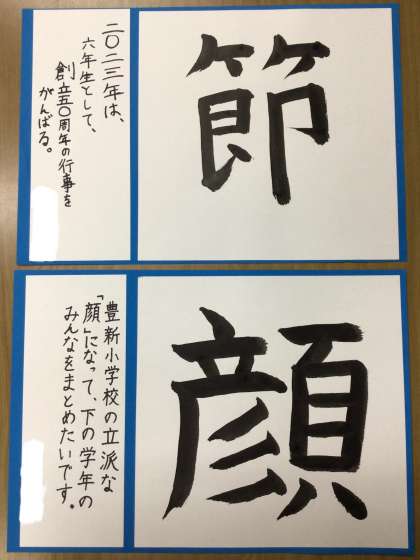 節
二〇二三年は、
六年生として、
創立五〇周年の行事を
がんばる。
顔
豊新小学校の立派な
「顔」になって、下の学年の
みんなをまとめたいです。